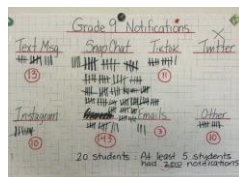 Grade 9 Notifications
Text Msg. SnapChat Tiktok Twitter
13 11
Instagram Emails Other
10 193 3 10
20 students : At least 5 students
had 200 notifications